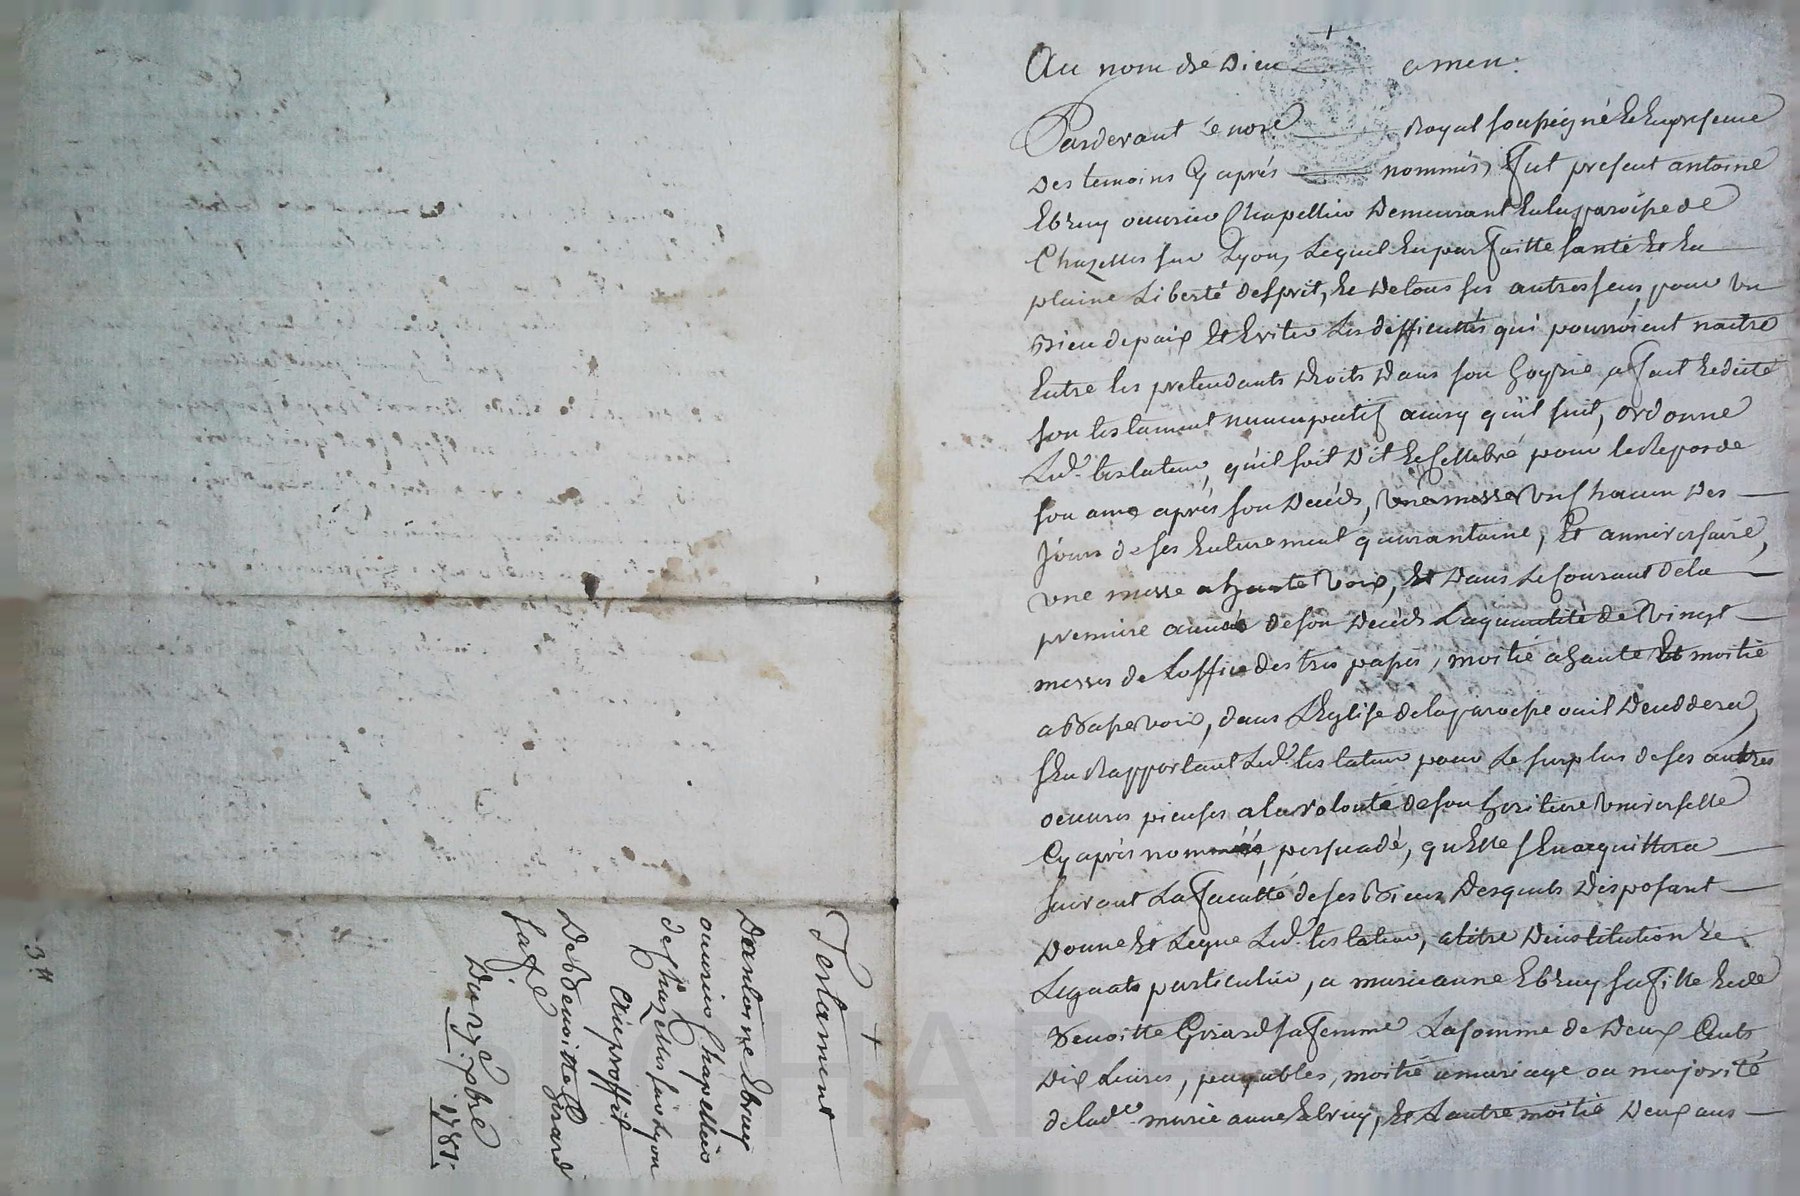 Au nom de Dieu amen.
Pardevant le no.re Royal soussigné et en presence
des temoins cy aprés nommés, fut present antoine
Ebruy ouvrier Chapellier demeurant en la paroisse de
Chazelles sur Lyon, lequel en parfaitte santé et en
plaine liberté d'esprit, et de tous ses autres sens, pour un
bien de paix et eviter les difficultés qui pourroient naitre
entre les pretendants droits dans son hoyrie, a fait et dicté
son testament nuncupatif ainsy qu'il suit, ordonne
led.t testateur, qu'il soit dit et cellebré pour le repos de
son ame aprés son decéds, une messe un chacun des
jours de ses enterrement quarantaine, et anniversaire,
une messe a haute voix, et dans le courant de la
premiere année de son decéds la quantité de vingt
messes de l'office des tres passés, moitié a haute et moitié
a basse voix, dans l'Eglise de la paroisse ou il deceddera,
s'en rapportant led.t testateur pour le surplus de ses autres
oeuvres pieuses a la volonté de son heritiere universelle
cy aprés nommée, persuadé, qu'elle s'en acquittera
suivant la faculté de ses biens desquels disposant
donne et legue led.t testateur, a titre d'institution et
legaats particulier, a marie anne Ebruy sa fille et de
benoitte Girard sa femme la somme de deux Cents
dix livres, payables, moitié a mariage ou majorité
de lad.e marie anne Ebruy, et l'autre moitié deux ans
Testament
D'antoine Ebruy
ouvrier Chapellier
de Chazelles sur Lyon
Au proffit
De Benoitte Girard
sa fe
Du 7.e xbre
1781.
3tt